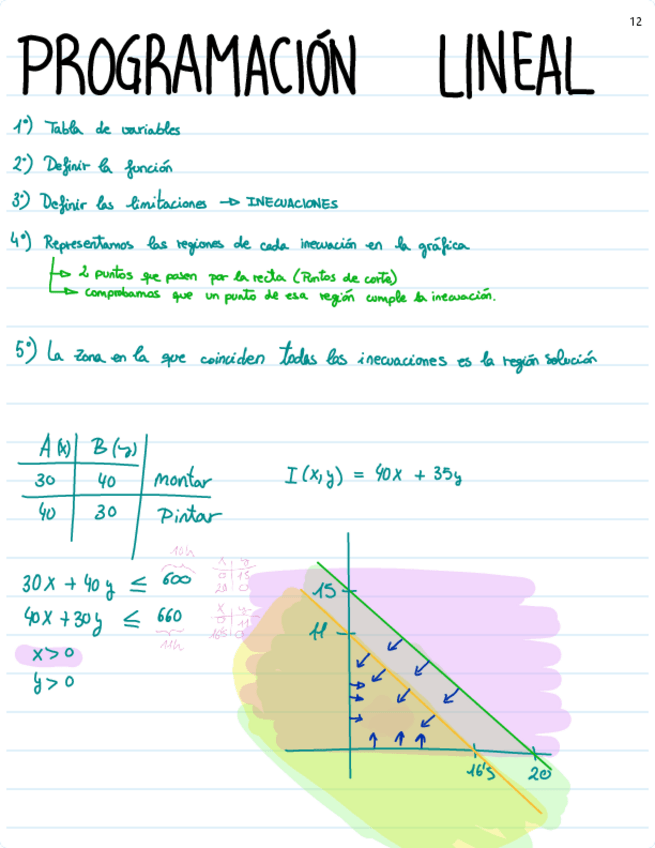 12
PROGRAMACIÓN LINEAL
1º) Tabla de variables
2º) Definir la función
3º) Definir las limitaciones → INECUACIONES
4º) Representamos las regiones de cada inecuación en la gráfica
→ 2 puntos que pasen por la recta (Puntos de corte)
→ comprobamos que un punto de esa región cumple la inecuación.
5º) La zona en la que coinciden todas las inecuaciones es la región solución
A (x) B (y)
30 40 montar
40 30 Pintar
I(x,y) = 40x + 35y
10h
30x + 40y ≤ 600
x y
0 15
20 0
40x + 30y ≤ 660
x y
0 11
16'5 0
11h
x > 0
y > 0
15
11
16'5
20